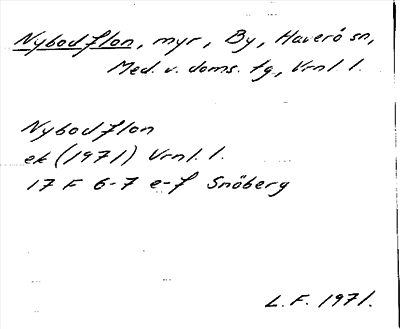 Nybodflon, myr, By, Haverö sn,
Med. v. doms. tg, Vrnl. l.
Nybodflon
ek (1971) Vrnl. l.
17 F 6-7 e-f Snöberg
L.F. 1971.